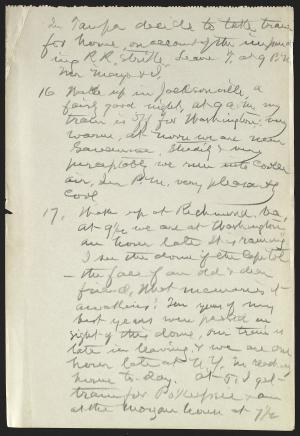 In Tampa decide to take train
for home, on account of the impend-
ing R.R. Strike. Leave T. at 9 P.M.
16. Wake up in Jacksonville, a
fairly good night, at 9 a.m. my
train is off for Washington; very
warm, at noon we are near
Savannah. Steadily & very
perceptably we run into cooler
air. In P.M. very pleasantly
cool
17. Wake up at Richmond, Va,
at 9½ we are at Washington
an hour late. It is raining.
I see the dome of the Capitol
— the face of an old & dear
friend, what memories it
awakens! Ten years of my
best years were passed in
sight of this dome. Our train is
late in leaving, & we are one
hour late at N.Y. in reaching
home to-day. At 5, I get
train for Po'keepsie & am
at the Morgan house at 7½